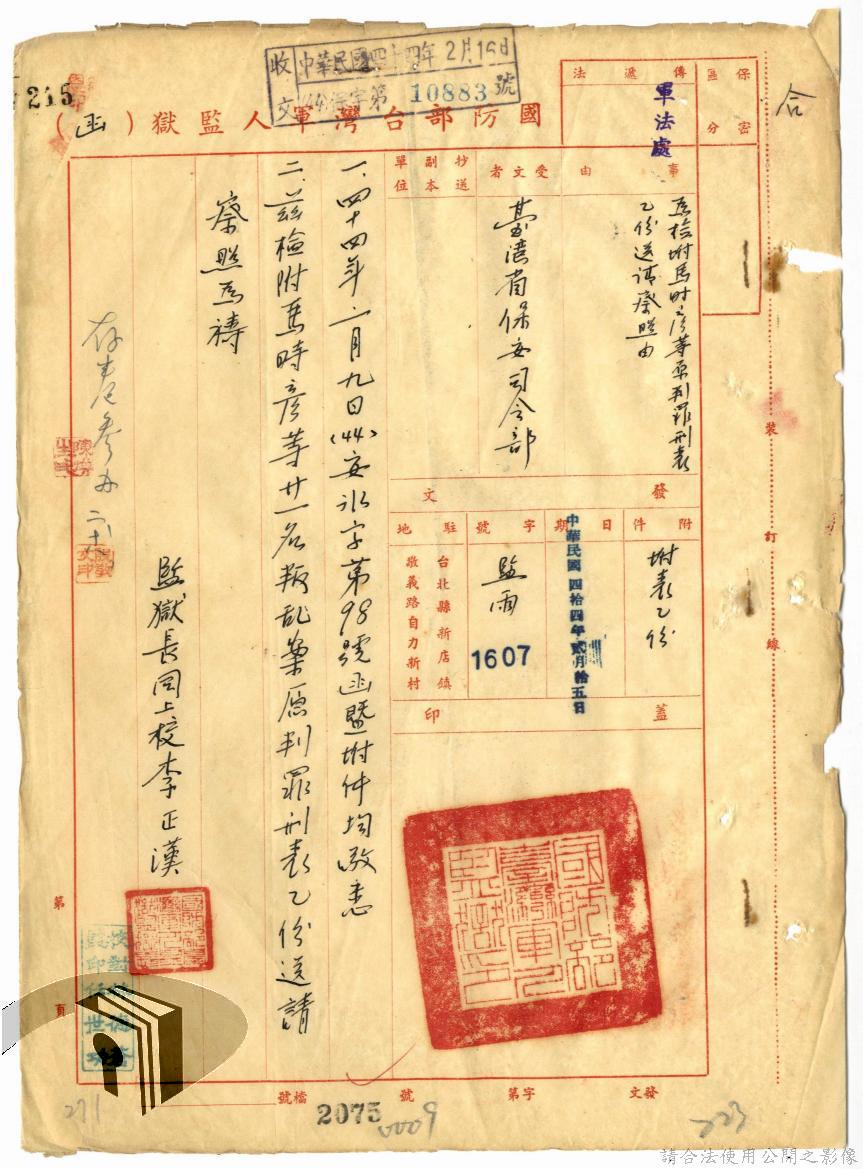 收文
中華民國四十四年2月16日
(44)保字第10883號
215
國防部台灣軍人監獄(函)
保密
區分
傳遞法
軍法處
合
事由
為檢附馬時彥等原判罪刑表
乙份送請察照由
受文者
臺灣省保安司令部
抄送
副本
單位
發文
附件
附表乙份
日期
中華民國四拾四年貳月拾五日
字號
監雨
1607
駐地
台北縣新店鎮
敬義路自力新村
蓋印
國防部臺灣軍人監獄印
一、四十四年二月九日(44)安字第98號函暨附件均敬悉
二、茲檢附馬時彥等廿一名叛乱案原判罪刑表乙份送請
察照為禱
監獄長同上校李正漢
存卷參
裝訂線
第頁
發文
字第
號
檔號
2075
0009
271
223
請合法使用公開之影像